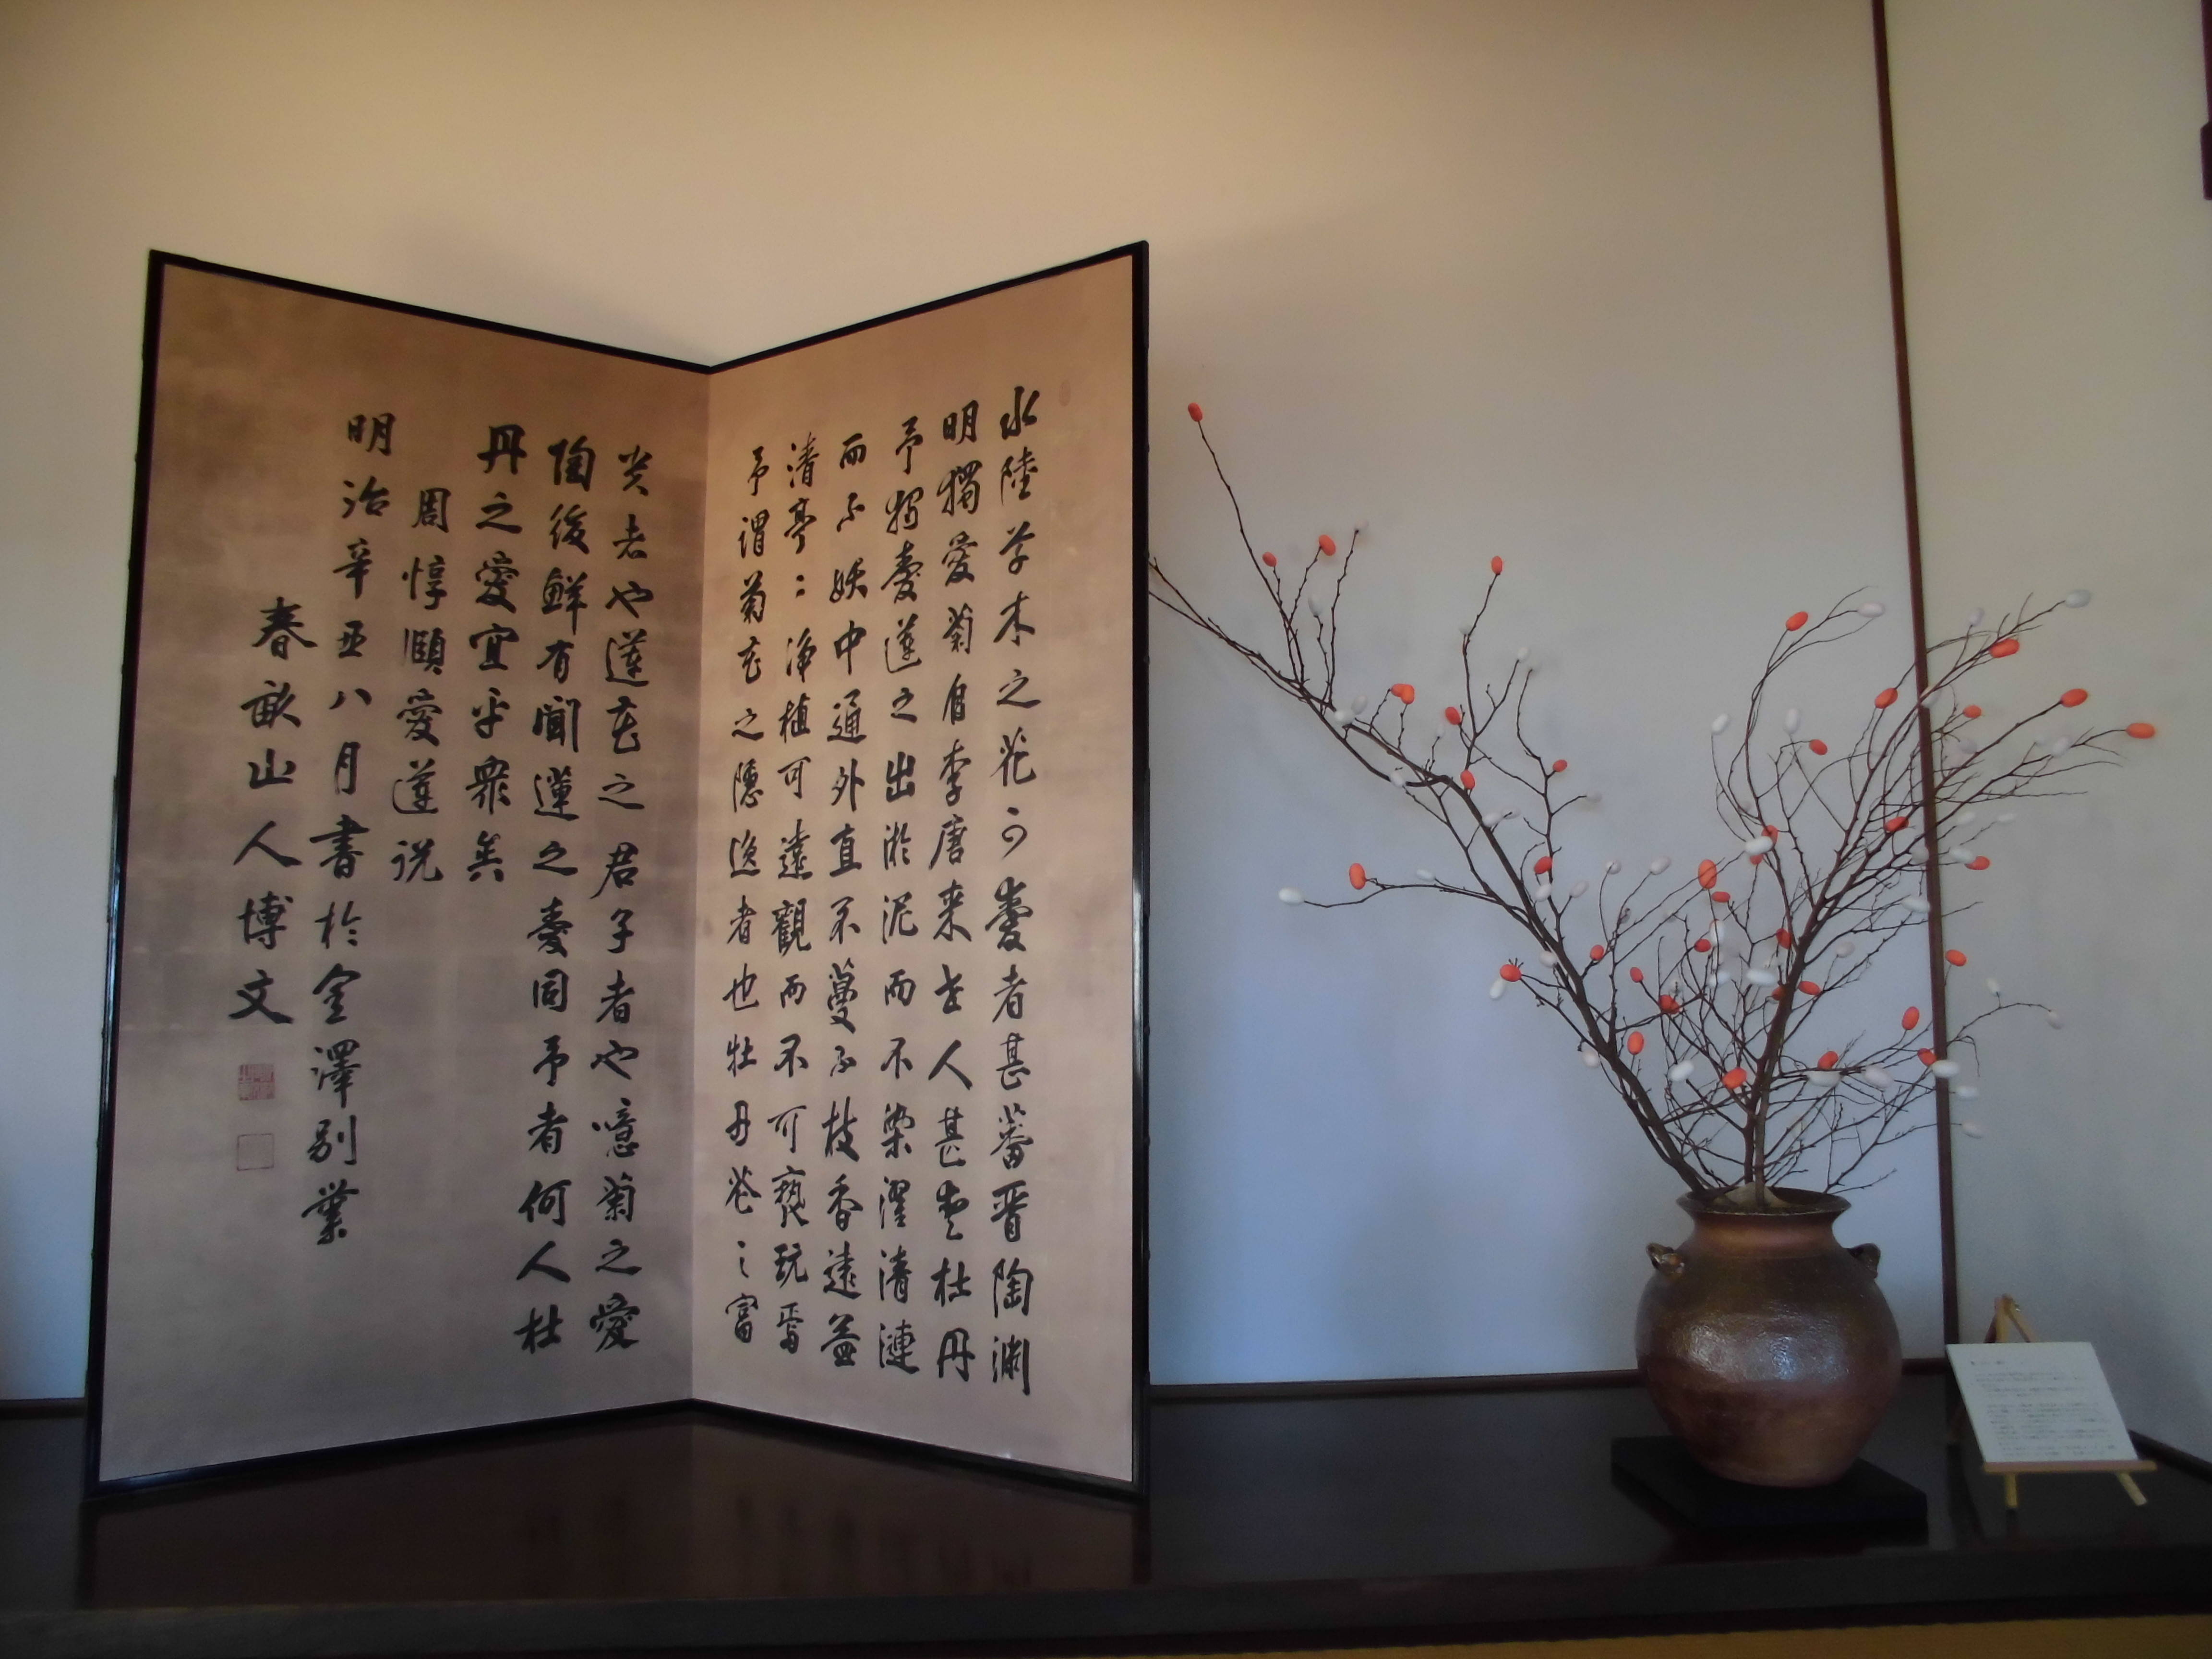 水陸草木之花可愛者甚蕃晋陶渊
明獨愛菊自李唐来世人甚愛牡丹
予獨愛蓮之出淤泥而不染濯清漣
而不妖中通外直不蔓不枝香遠益
清亭〻浄植可遠觀而不可褻玩焉
予謂菊花之隠逸者也牡丹花之富
貴者也蓮花之君子者也噫菊之愛
陶後鮮有聞蓮之愛同予者何人牡
丹之愛宜乎衆矣
周惇頤愛蓮説
明治辛丑八月書於金澤別業
春畝山人博文